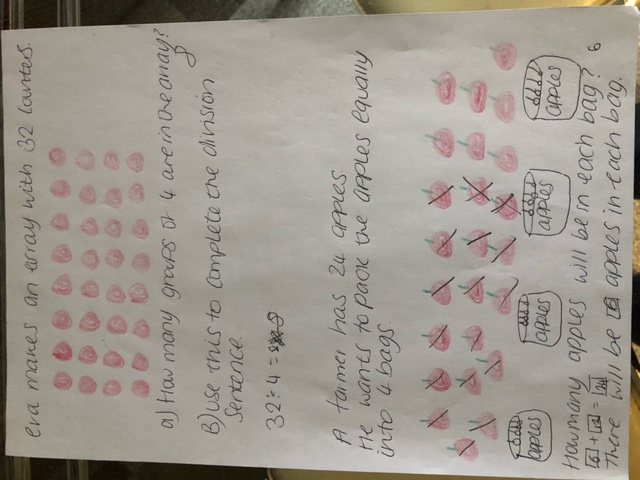 era makes an array with 32 counters.
a) How many groups of 4 are in the array?
8
B) use this to complete the division
sentence.
32 ÷ 4 = 8
A farmer has 24 apples
He wants to pack the apples equally
into 4 bags
apples
apples
apples
apples
How many apples will be in each bag?
There will be 6 apples in each bag.
6